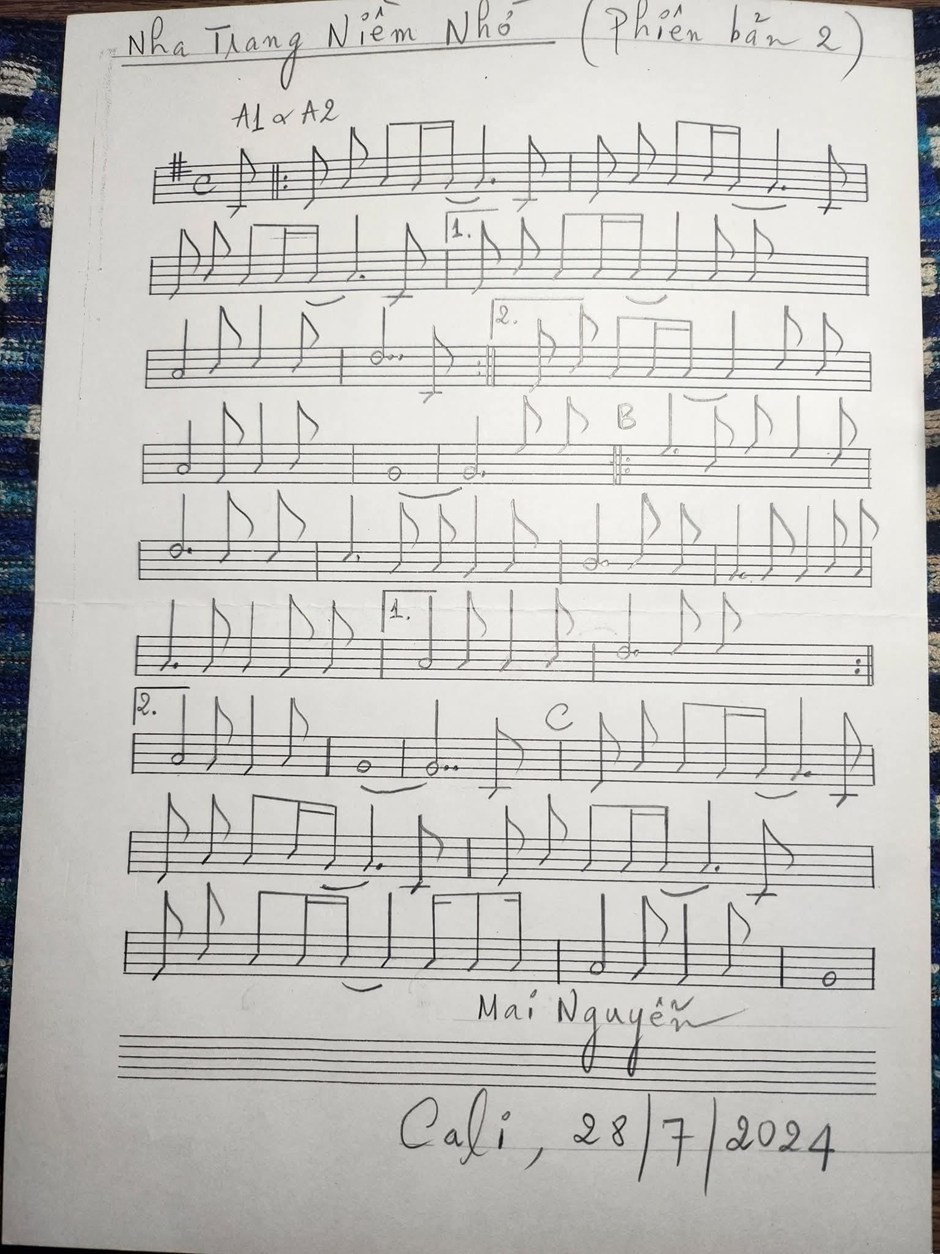 Nha Trang Niềm Nhớ (Phiên bản 2)
A1 & A2
C
1.
2.
B
1.
2.
C
Mai Nguyễn
Cali, 28/7/2024